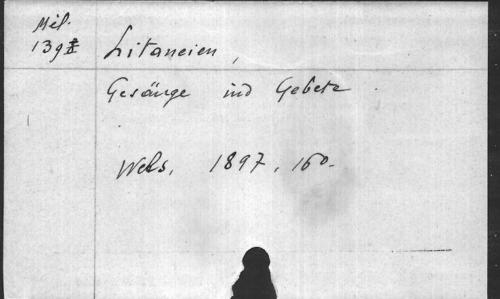 Mél.
139 II
Litaneien,
Gesänge und Gebete
Wels, 1897, 16°.